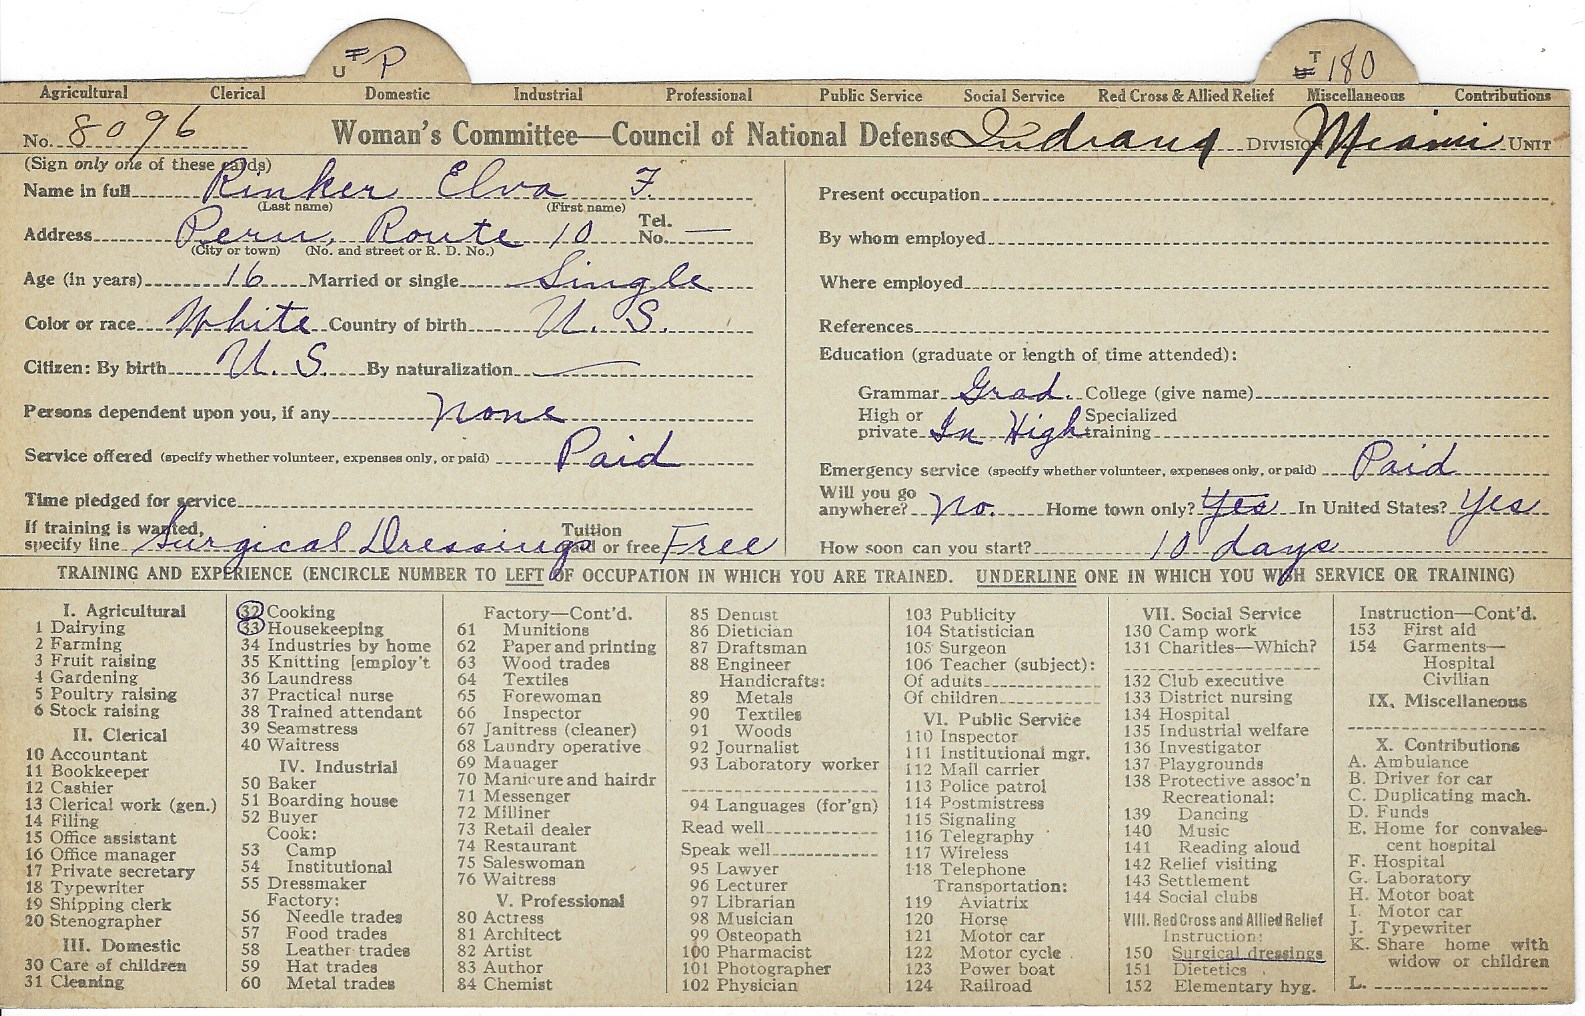 U P
T 180
Agricultural Clerical Domestic Industrial Professional Public Service Social Service Red Cross & Allied Relief Miscellaneous Contributions
No. 8096 Woman's Committee—Council of National Defense Indiana DIVISION Miami UNIT
(Sign only one of these cards)
Name in full Rinker Elva F.
(Last name) (First name)
Address Peru, Route 10 Tel. No. —
(City or town) (No. and street or R. D. No.)
Age (in years) 16 Married or single Single
Color or race White Country of birth U. S.
Citizen: By birth U. S. By naturalization —
Persons dependent upon you, if any none
Service offered (specify whether volunteer, expenses only, or paid) Paid
Time pledged for service
If training is wanted, specify line Surgical Dressings Tuition paid or free Free
Present occupation
By whom employed
Where employed
References
Education (graduate or length of time attended):
Grammar Grad. College (give name)
High or private In High Specialized training
Emergency service (specify whether volunteer, expenses only, or paid) Paid
Will you go anywhere? No. Home town only? Yes In United States? Yes
How soon can you start? 10 days
TRAINING AND EXPERIENCE (ENCIRCLE NUMBER TO LEFT OF OCCUPATION IN WHICH YOU ARE TRAINED. UNDERLINE ONE IN WHICH YOU WISH SERVICE OR TRAINING)
I. Agricultural
1 Dairying
2 Farming
3 Fruit raising
4 Gardening
5 Poultry raising
6 Stock raising
II. Clerical
10 Accountant
11 Bookkeeper
12 Cashier
13 Clerical work (gen.)
14 Filing
15 Office assistant
16 Office manager
17 Private secretary
18 Typewriter
19 Shipping clerk
20 Stenographer
III. Domestic
30 Care of children
31 Cleaning
32 Cooking
33 Housekeeping
34 Industries by home
35 Knitting [employ't
36 Laundress
37 Practical nurse
38 Trained attendant
39 Seamstress
40 Waitress
IV. Industrial
50 Baker
51 Boarding house
52 Buyer
Cook:
53 Camp
54 Institutional
55 Dressmaker
Factory:
56 Needle trades
57 Food trades
58 Leather trades
59 Hat trades
60 Metal trades
Factory—Cont'd.
61 Munitions
62 Paper and printing
63 Wood trades
64 Textiles
65 Forewoman
66 Inspector
67 Janitress (cleaner)
68 Laundry operative
69 Manager
70 Manicure and hairdr
71 Messenger
72 Milliner
73 Retail dealer
74 Restaurant
75 Saleswoman
76 Waitress
V. Professional
80 Actress
81 Architect
82 Artist
83 Author
84 Chemist
85 Dentist
86 Dietician
87 Draftsman
88 Engineer
Handicrafts:
89 Metals
90 Textiles
91 Woods
92 Journalist
93 Laboratory worker
94 Languages (for'gn)
Read well
Speak well
95 Lawyer
96 Lecturer
97 Librarian
98 Musician
99 Osteopath
100 Pharmacist
101 Photographer
102 Physician
103 Publicity
104 Statistician
105 Surgeon
106 Teacher (subject):
Of adults
Of children
VI. Public Service
110 Inspector
111 Institutional mgr.
112 Mail carrier
113 Police patrol
114 Postmistress
115 Signaling
116 Telegraphy
117 Wireless
118 Telephone
Transportation:
119 Aviatrix
120 Horse
121 Motor car
122 Motor cycle
123 Power boat
124 Railroad
VII. Social Service
130 Camp work
131 Charities—Which?
132 Club executive
133 District nursing
134 Hospital
135 Industrial welfare
136 Investigator
137 Playgrounds
138 Protective assoc'n
Recreational:
139 Dancing
140 Music
141 Reading aloud
142 Relief visiting
143 Settlement
144 Social clubs
VIII. Red Cross and Allied Relief
Instruction:
150 Surgical dressings
151 Dietetics
152 Elementary hyg.
Instruction—Cont'd.
153 First aid
154 Garments—
Hospital
Civilian
IX. Miscellaneous
X. Contributions
A. Ambulance
B. Driver for car
C. Duplicating mach.
D. Funds
E. Home for convales-
cent hospital
F. Hospital
G. Laboratory
H. Motor boat
I. Motor car
J. Typewriter
K. Share home with
widow or children
L.